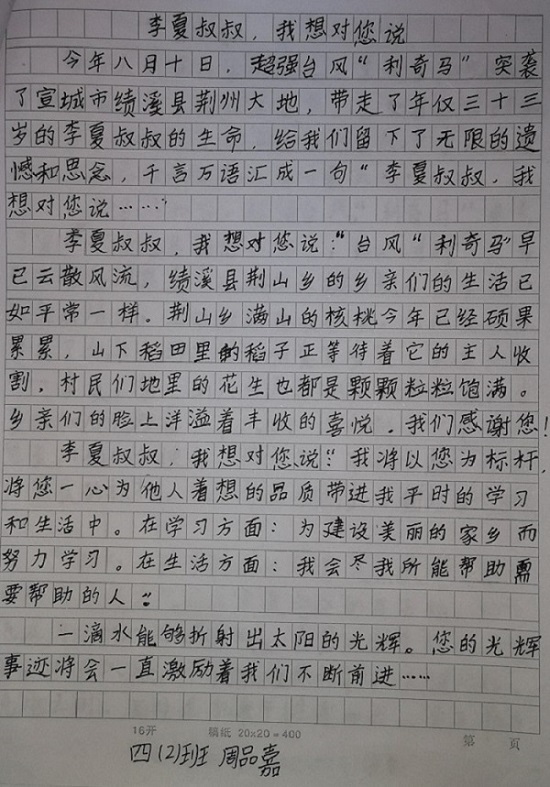 李夏叔叔，我想对您说
今年八月十日，超强台风“利奇马”突袭
了宣城市绩溪县荆州大地，带走了年仅三十三
岁的李夏叔叔的生命，给我们留下了无限的遗
憾和思念，千言万语汇成一句“李夏叔叔，我
想对您说……”
李夏叔叔，我想对您说：“台风“利奇马”早
已云散风流，绩溪县荆山乡的乡亲们的生活已
如平常一样。荆山乡满山的核桃今年已经硕果
累累，山下稻田里的稻子正等待着它的主人收
割，村民们地里的花生也都是颗颗粒粒饱满。
乡亲们的脸上洋溢着丰收的喜悦。我们感谢您！
李夏叔叔，我想对您说：“我将以您为标杆，
将您一心为他人着想的品质带进我平时的学习
和生活中。在学习方面：为建设美丽的家乡而
努力学习。在生活方面：我会尽我所能帮助需
要帮助的人。”
一滴水能够折射出太阳的光辉。您的光辉
事迹将会一直激励着我们不断前进……
16开 稿纸 20×20=400 第 页
四（2）班 周品嘉